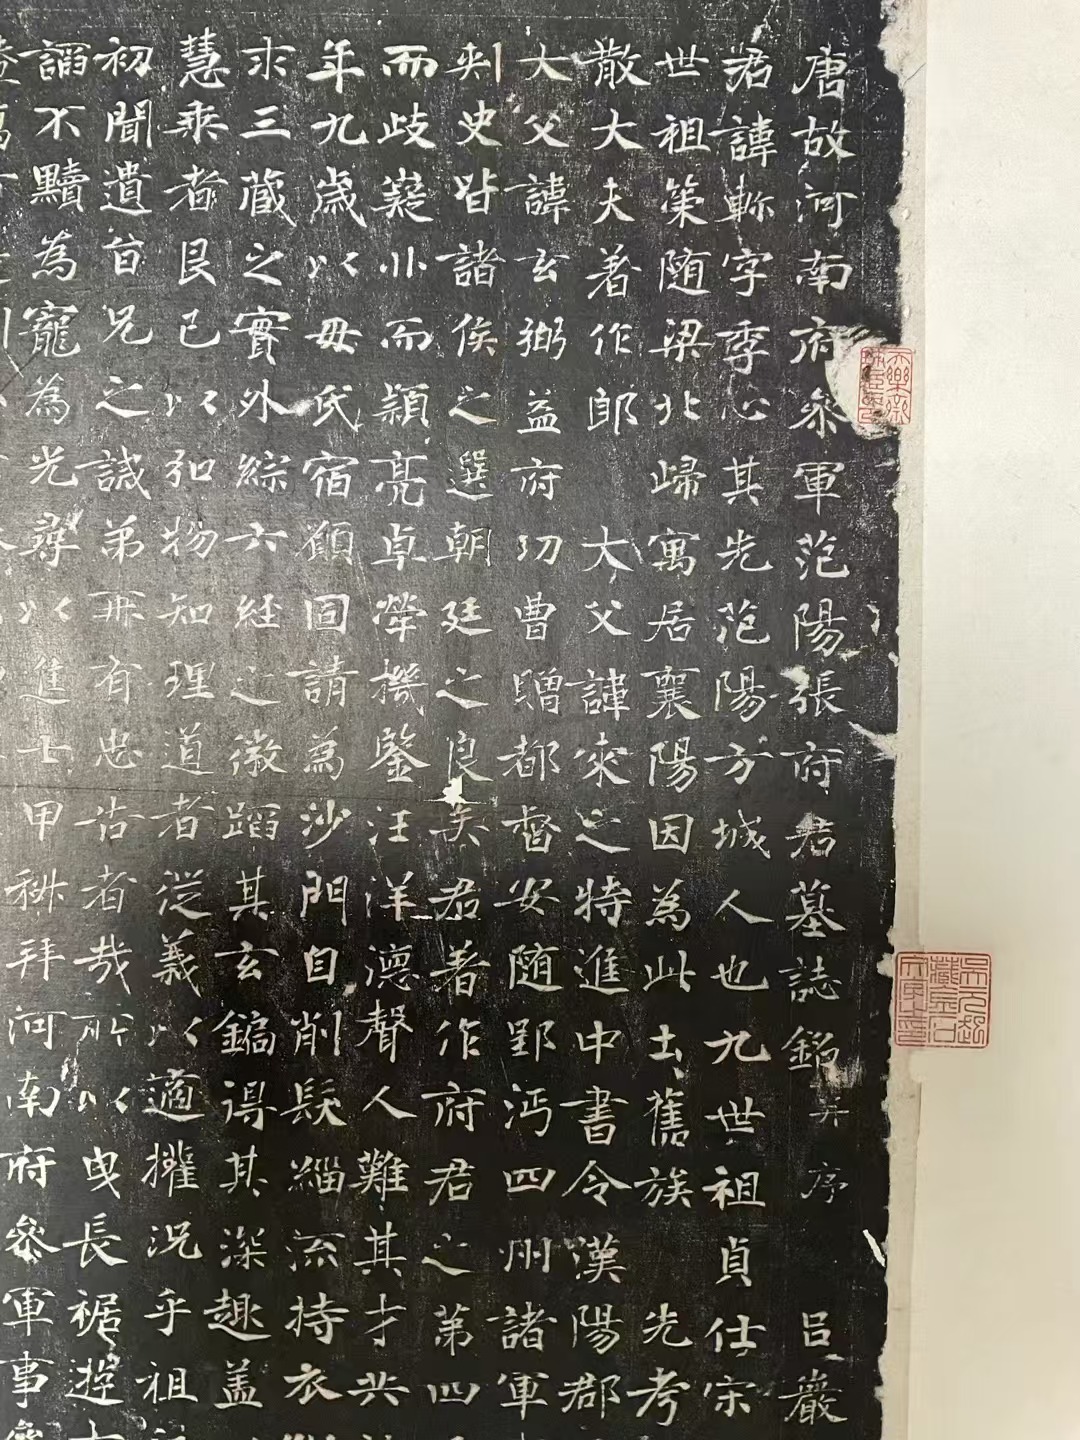 唐故河南府叅軍范陽張府君墓誌銘并序 吕巖
君諱軫字季心其先范陽方城人也九世祖貞仕宋
世祖策随梁北歸寓居襄陽因為此土舊族 先考
散大夫著作郎 大父諱柬之特進中書令漢陽郡
大父諱玄弼益府功曹贈都督安随郢沔四州諸軍
刾史皆諸侯之選朝廷之良矣君著作府君之第四
而歧嶷丱而穎亮卓犖機鑒汪洋德聲人難其才共
年九歳以毋氏宿願固請為沙門自削髮緇流持衣
求三蔵之實外綜六経之徵蹈其玄鎬得其深趣盖
慧乘者艮已以弘物知理道者從義以適擢况乎祖
初聞遺旨兄之誡弟冞有忠告者哉所以曵長裾遊
謂不黷為寵為光尋以進士甲科拜河南府參軍事